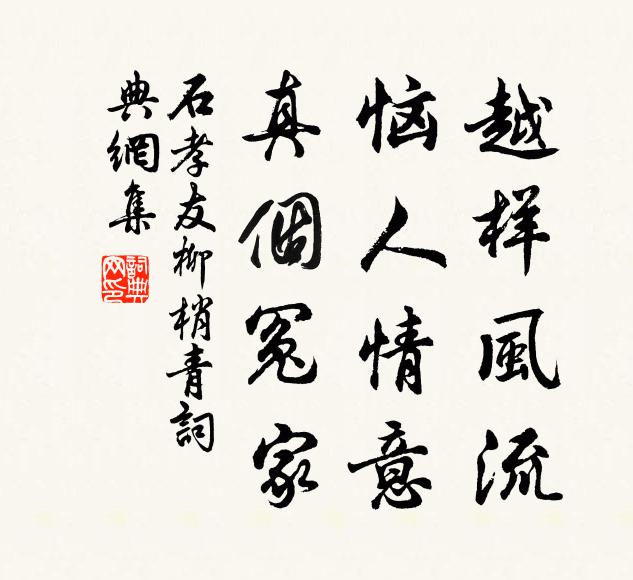 越样風流
恼人情意
真個冤家
石孝友柳梢青詞
典網集
詞典網印